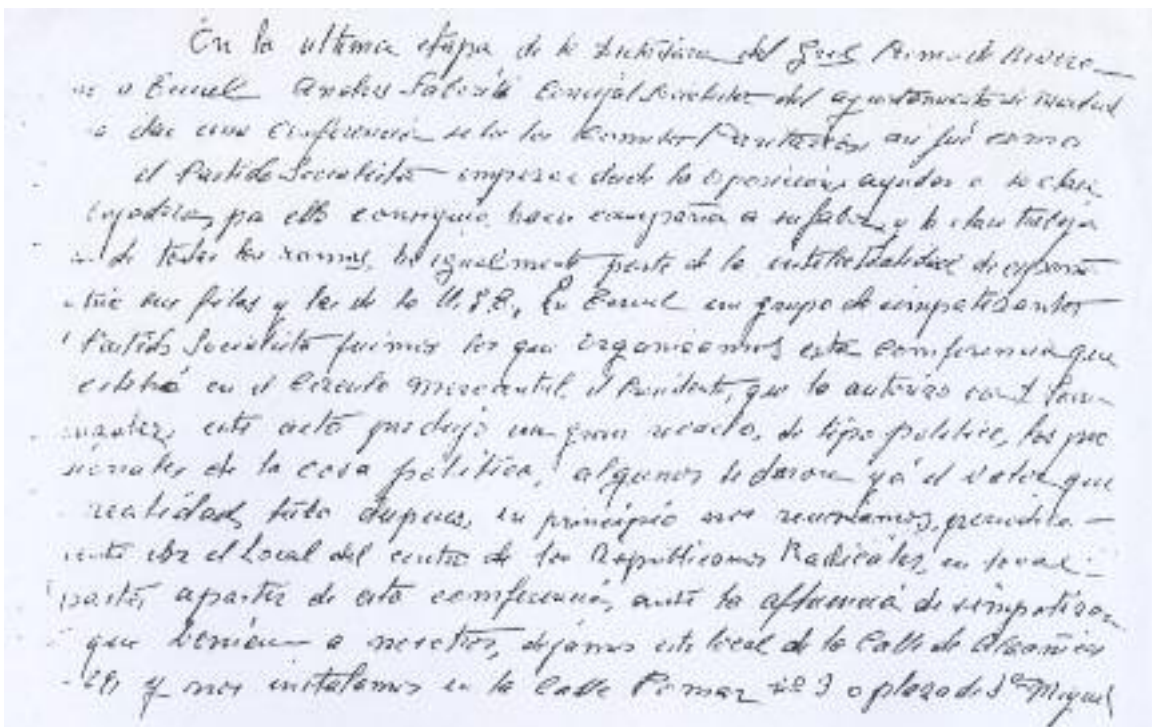 En la ultima etapa de la Dictadura del Gral Primo de Rivera
a Teruel Andres Saborit Concejal Socialista del ayuntamiento de Madrid
a dar una Conferencia sobre los Comites Paritarios asi fué como
el Partido Socialista empezo desde la oposicion, ayudar a la clase
bajadora, pa ello consiguio hacer campaña a su fabor, y la clase trabaja
de todos los ramos, he igualmente parte de la intelectualidad de españa
sus filas y las de la U.G.T., En Teruel un grupo de simpatisantes
Partido Socialista fuimos los que organicamos esta comferencia que
celebró en el Circulo Mercantil, el Presidente, que lo autorizo
este acto produjo un gran rebuelo, de tipo politico, los
de la cosa politica, algunos le daron yá el valor que
realidad, tubo despues, en principio nos reuniamos, periodica
el Local del centro de los Republicanos Radicales, en
apartir de esta comferencia, ante la afluencia de simpatizan
que benian a nosotros, dejamos este local de la Calle de Alcañices
y nos instalamos en la Calle Pomar nº 3 o plaza de Sn Miguel